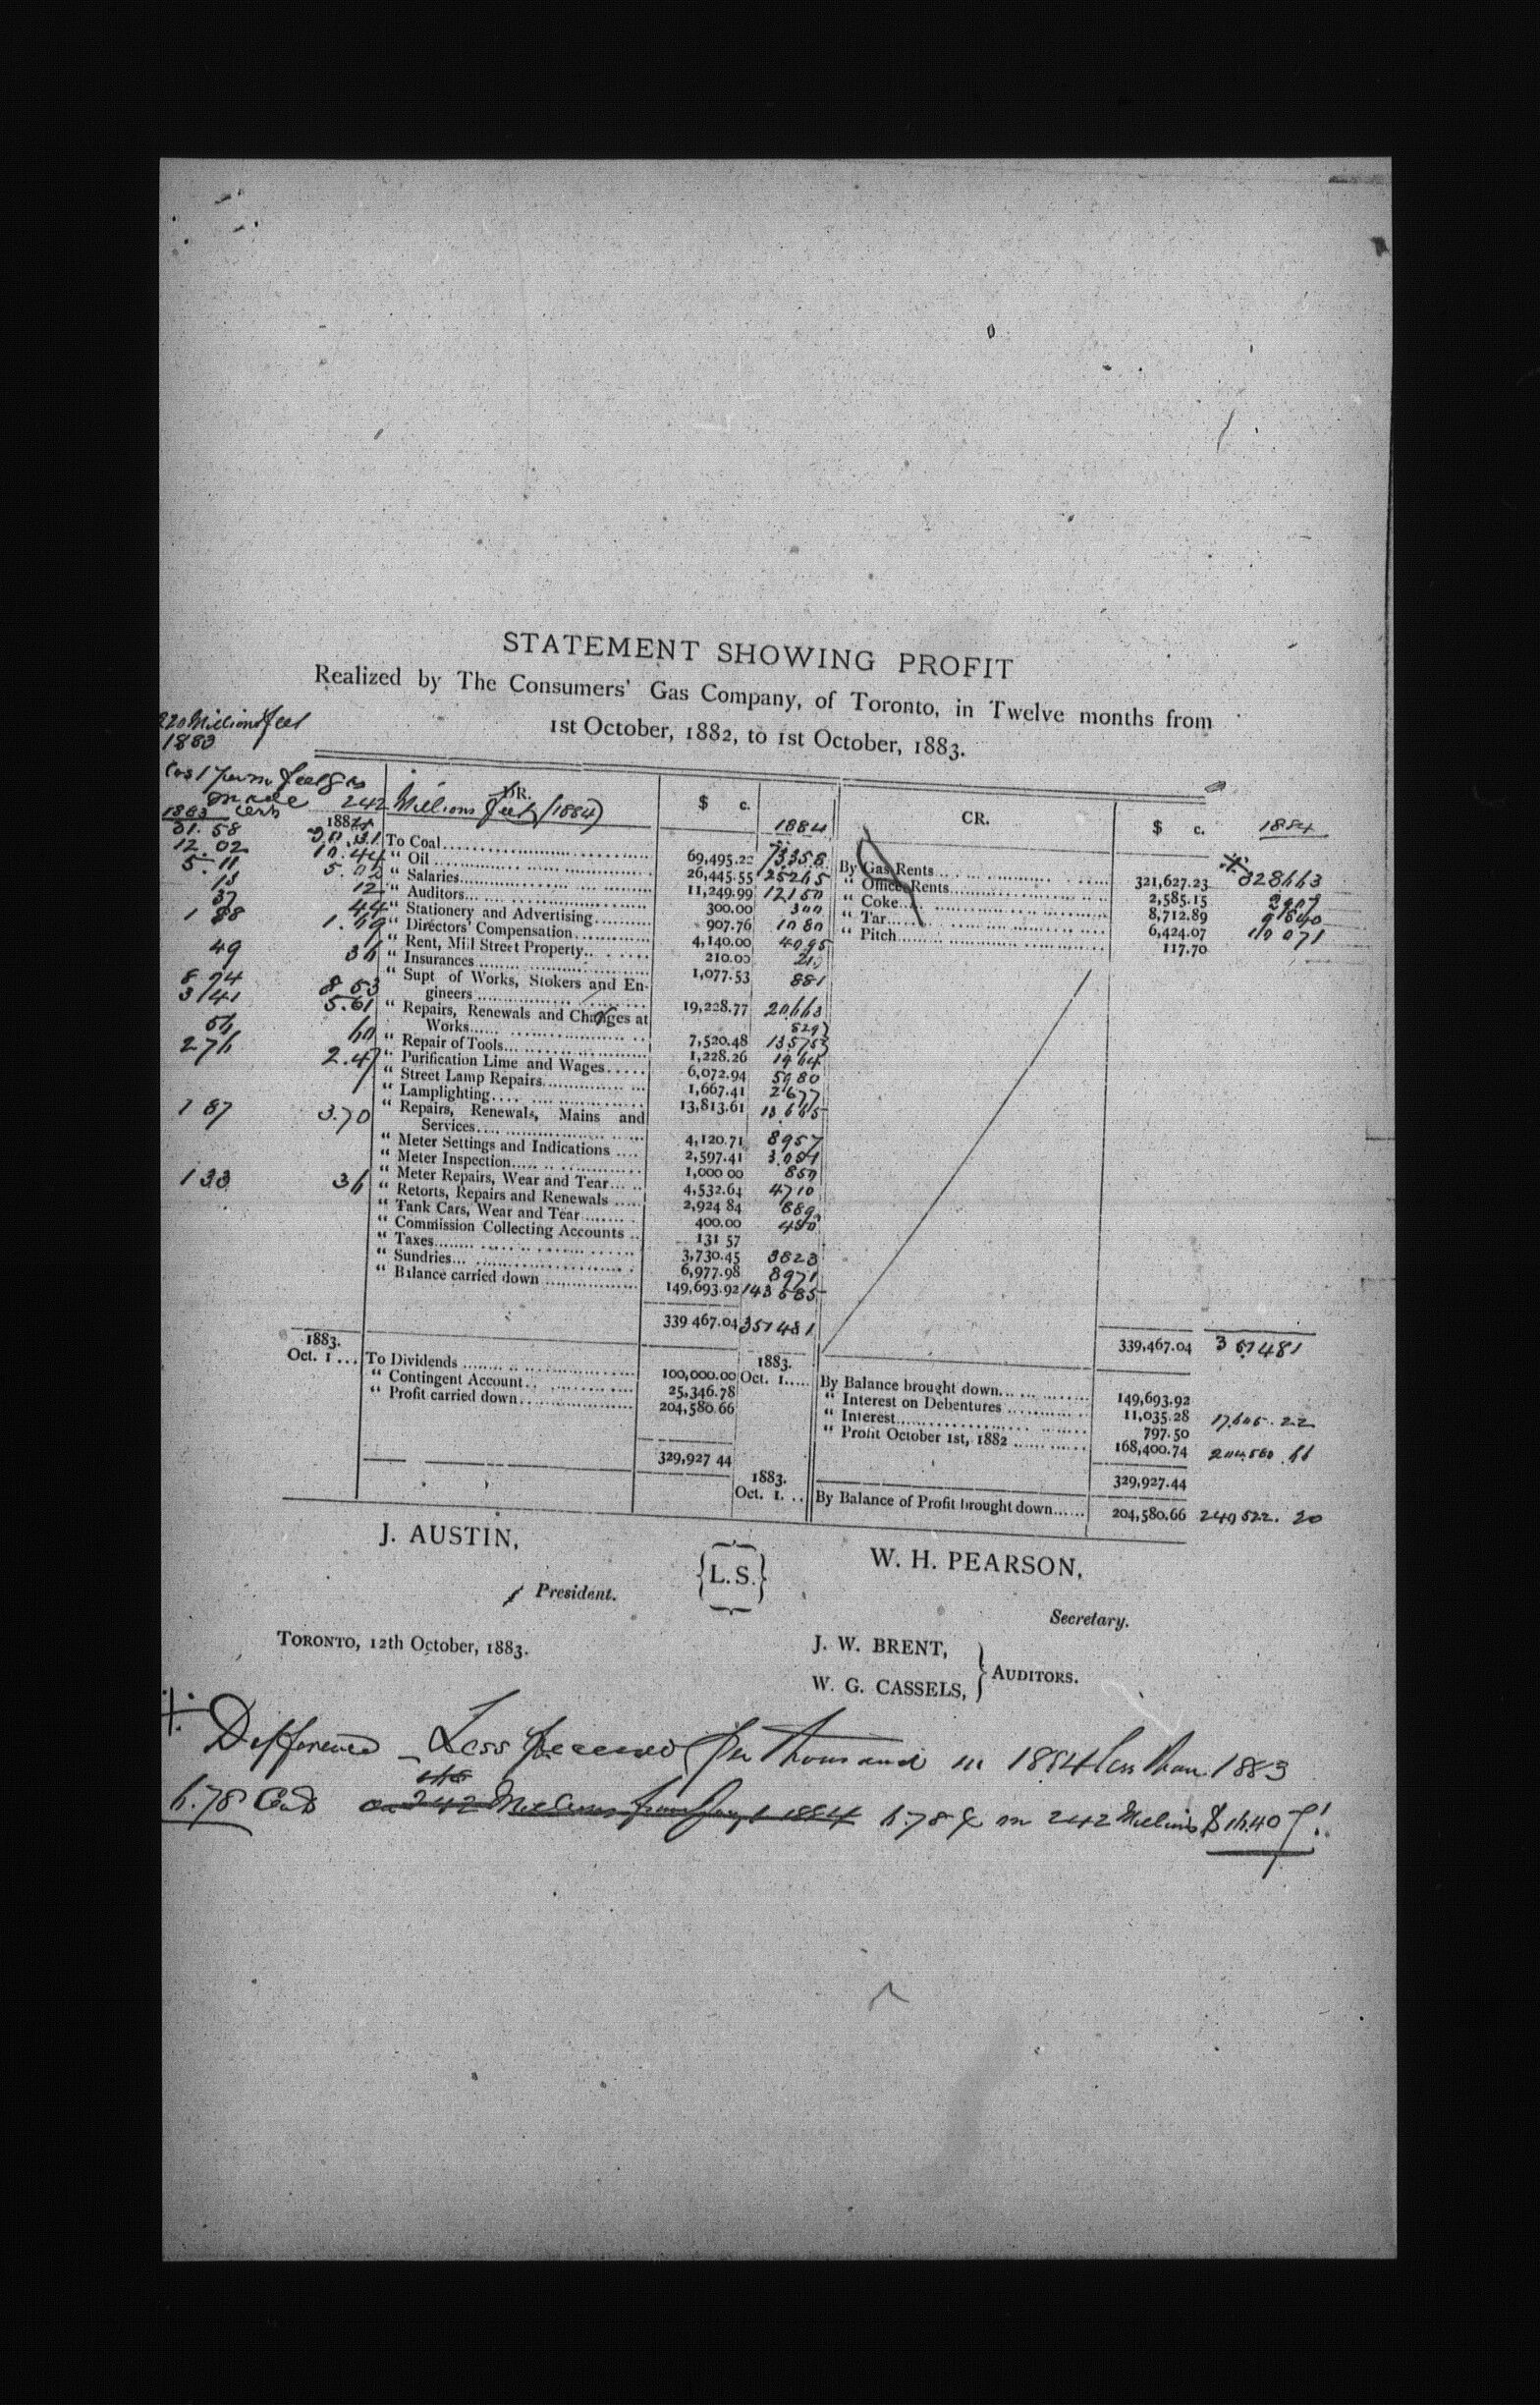 STATEMENT SHOWING PROFIT
Realized by The Consumers' Gas Company, of Toronto, in Twelve months from
1st October, 1882, to 1st October, 1883.
220 Millions feet
1883
Cost per m feet gas
made 242 Millions feet (1884)
1883 cents 1884
DR. $ c. 1884
31.58 30.31 To Coal 69,495.22 73358
12.02 10.44 " Oil 26,445.55 25265
5.11 5.02 " Salaries 11,249.99 12150
13 12 " Auditors 300.00 300
37 44 " Stationery and Advertising 907.76 1080
1 88 1.69 " Directors' Compensation 4,140.00 4095
" Rent, Mill Street Property 210.00 210
49 36 " Insurances 1,077.53 881
" Supt of Works, Stokers and En-
8 74 8 53 gineers 19,228.77 20663
" Repairs, Renewals and Changes at
3/41 5.61 Works 7,520.48 13575
" Repair of Tools 1,228.26 1464
2 76 2.47 " Purification Lime and Wages 6,072.94 5980
" Street Lamp Repairs 1,667.41 2677
" Lamplighting 13,813.61 13665
" Repairs, Renewals, Mains and
1 87 3.70 Services 4,120.71 8957
" Meter Settings and Indications 2,597.41 3,051
" Meter Inspection 1,000 00 850
" Meter Repairs, Wear and Tear 4,532.64 4710
1 33 36 " Retorts, Repairs and Renewals 2,924 84 889
" Tank Cars, Wear and Tear 400.00 480
" Commission Collecting Accounts 131 57
" Taxes 3,730.45 3823
" Sundries 6,977.98 8971
" Balance carried down 149,693.92 143585
339 467.04 351481
1883.
Oct. 1 To Dividends 100,000.00
" Contingent Account 25,346.78
" Profit carried down 204,580.66
329,927 44
CR. $ c. 1884
By Gas Rents 321,627.23 328663
" Office Rents 2,585.15 2907
" Coke 8,712.89 9840
" Tar 6,424.07 10071
" Pitch 117.70
339,467.04 351481
1883.
Oct. 1 By Balance brought down 149,693.92
" Interest on Debentures 11,035.28 17,605.22
" Interest 797.50
" Profit October 1st, 1882 168,400.74 204,580.66
329,927.44
1883.
Oct. 1. By Balance of Profit brought down 204,580.66 240522.20
J. AUSTIN,
President.
{L.S.}
W. H. PEARSON,
Secretary.
TORONTO, 12th October, 1883.
J. W. BRENT,
W. G. CASSELS, } AUDITORS.
Difference – Less Received per Thousand in 1884 less than 1883
6.78 Cents on 242 Millions 1884 6.78 on 242 Millions $16.407!